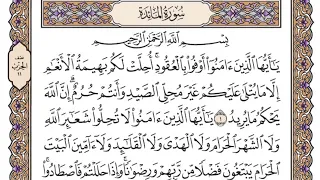 سُورَةُ المَائِدَةِ
بِسْمِ اللَّهِ الرَّحْمَٰنِ الرَّحِيمِ
يَٰٓأَيُّهَا الَّذِينَ ءَامَنُوٓا أَوْفُوا بِالْعُقُودِ أُحِلَّتْ لَكُم بَهِيمَةُ الْأَنْعَٰمِ
إِلَّا مَا يُتْلَىٰ عَلَيْكُمْ غَيْرَ مُحِلِّي الصَّيْدِ وَأَنتُمْ حُرُمٌ إِنَّ اللَّهَ
يَحْكُمُ مَا يُرِيدُ ١ يَٰٓأَيُّهَا الَّذِينَ ءَامَنُوا لَا تُحِلُّوا شَعَٰٓئِرَ اللَّهِ
وَلَا الشَّهْرَ الْحَرَامَ وَلَا الْهَدْيَ وَلَا الْقَلَٰٓئِدَ وَلَآ ءَآمِّينَ الْبَيْتَ
الْحَرَامَ يَبْتَغُونَ فَضْلًا مِّن رَّبِّهِمْ وَرِضْوَٰنًا وَإِذَا حَلَلْتُمْ فَاصْطَادُوا